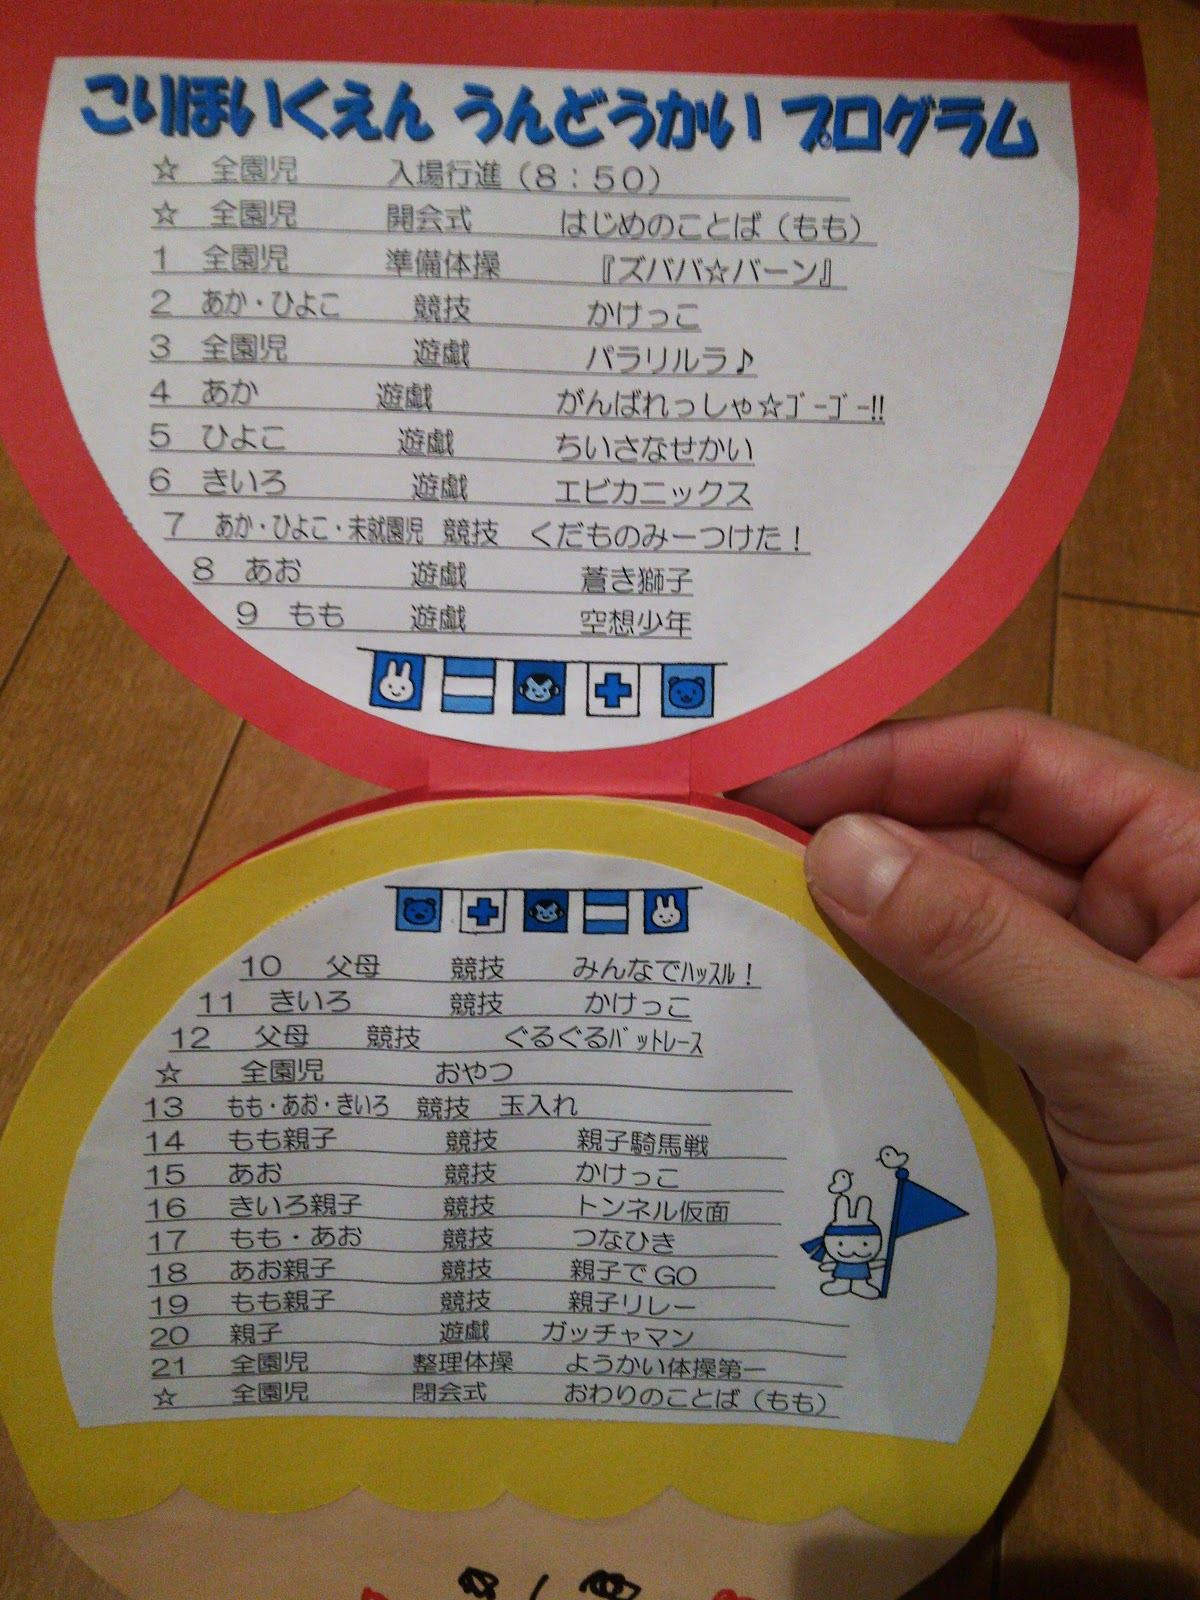 こりほいくえん うんどうかい プログラム
☆ 全園児 入場行進（8：50）
☆ 全園児 開会式 はじめのことば（もも）
1 全園児 準備体操 『ズババ☆バーン』
2 あか・ひよこ 競技 かけっこ
3 全園児 遊戯 パラリルラ♪
4 あか 遊戯 がんばれっしゃ☆ｺﾞｰｺﾞｰ!!
5 ひよこ 遊戯 ちいさなせかい
6 きいろ 遊戯 エビカニックス
7 あか・ひよこ・未就園児 競技 くだものみーつけた！
8 あお 遊戯 蒼き獅子
9 もも 遊戯 空想少年
10 父母 競技 みんなでﾊｯｽﾙ！
11 きいろ 競技 かけっこ
12 父母 競技 ぐるぐるﾊﾞｯﾄﾚｰｽ
☆ 全園児 おやつ
13 もも・あお・きいろ 競技 玉入れ
14 もも親子 競技 親子騎馬戦
15 あお 競技 かけっこ
16 きいろ親子 競技 トンネル仮面
17 もも・あお 競技 つなひき
18 あお親子 競技 親子でGO
19 もも親子 競技 親子リレー
20 親子 遊戯 ガッチャマン
21 全園児 整理体操 ようかい体操第一
☆ 全園児 閉会式 おわりのことば（もも）